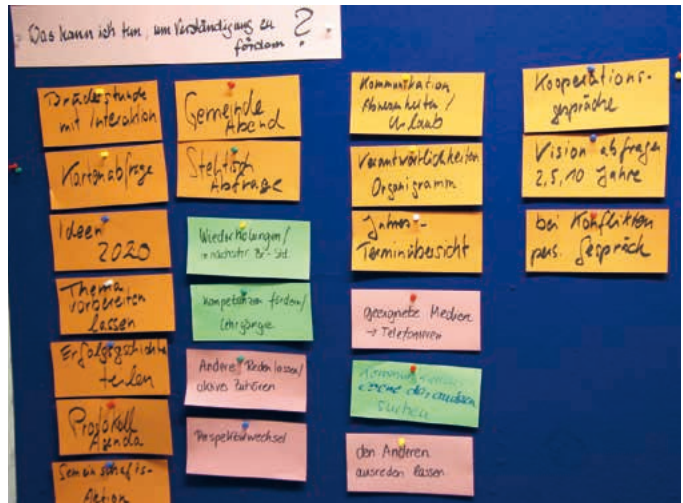 Was kann ich tun, um Verständigung zu
fördern ?
Brüderstunde
mit Interaktion
Kartenabfrage
Ideen
2020
Thema
vorbereiten
lassen
Erfolgsgeschichte
teilen
Protokoll
Agenda
Gemeinschafts-
Aktion
Gemeinde
Abend
Stehtisch
Abfrage
Wiederholungen/
nächster Br-Std.
Kompetenzen fördern/
Lehrgänge
Andere Reden lassen/
aktives Zuhören
Perspektivwechsel
Kommunikation
Abwesenheiten /
Urlaub
Verantwortlichkeiten
Organigramm
Jahres-
Terminübersicht
geeignete Medien
→ Telefonieren
ebene des anderen
suchen
den Anderen
ausreden lassen
Kooperations-
gespräche
Vision abfragen
2, 5, 10 Jahre
bei Konflikten
pers. Gespräch